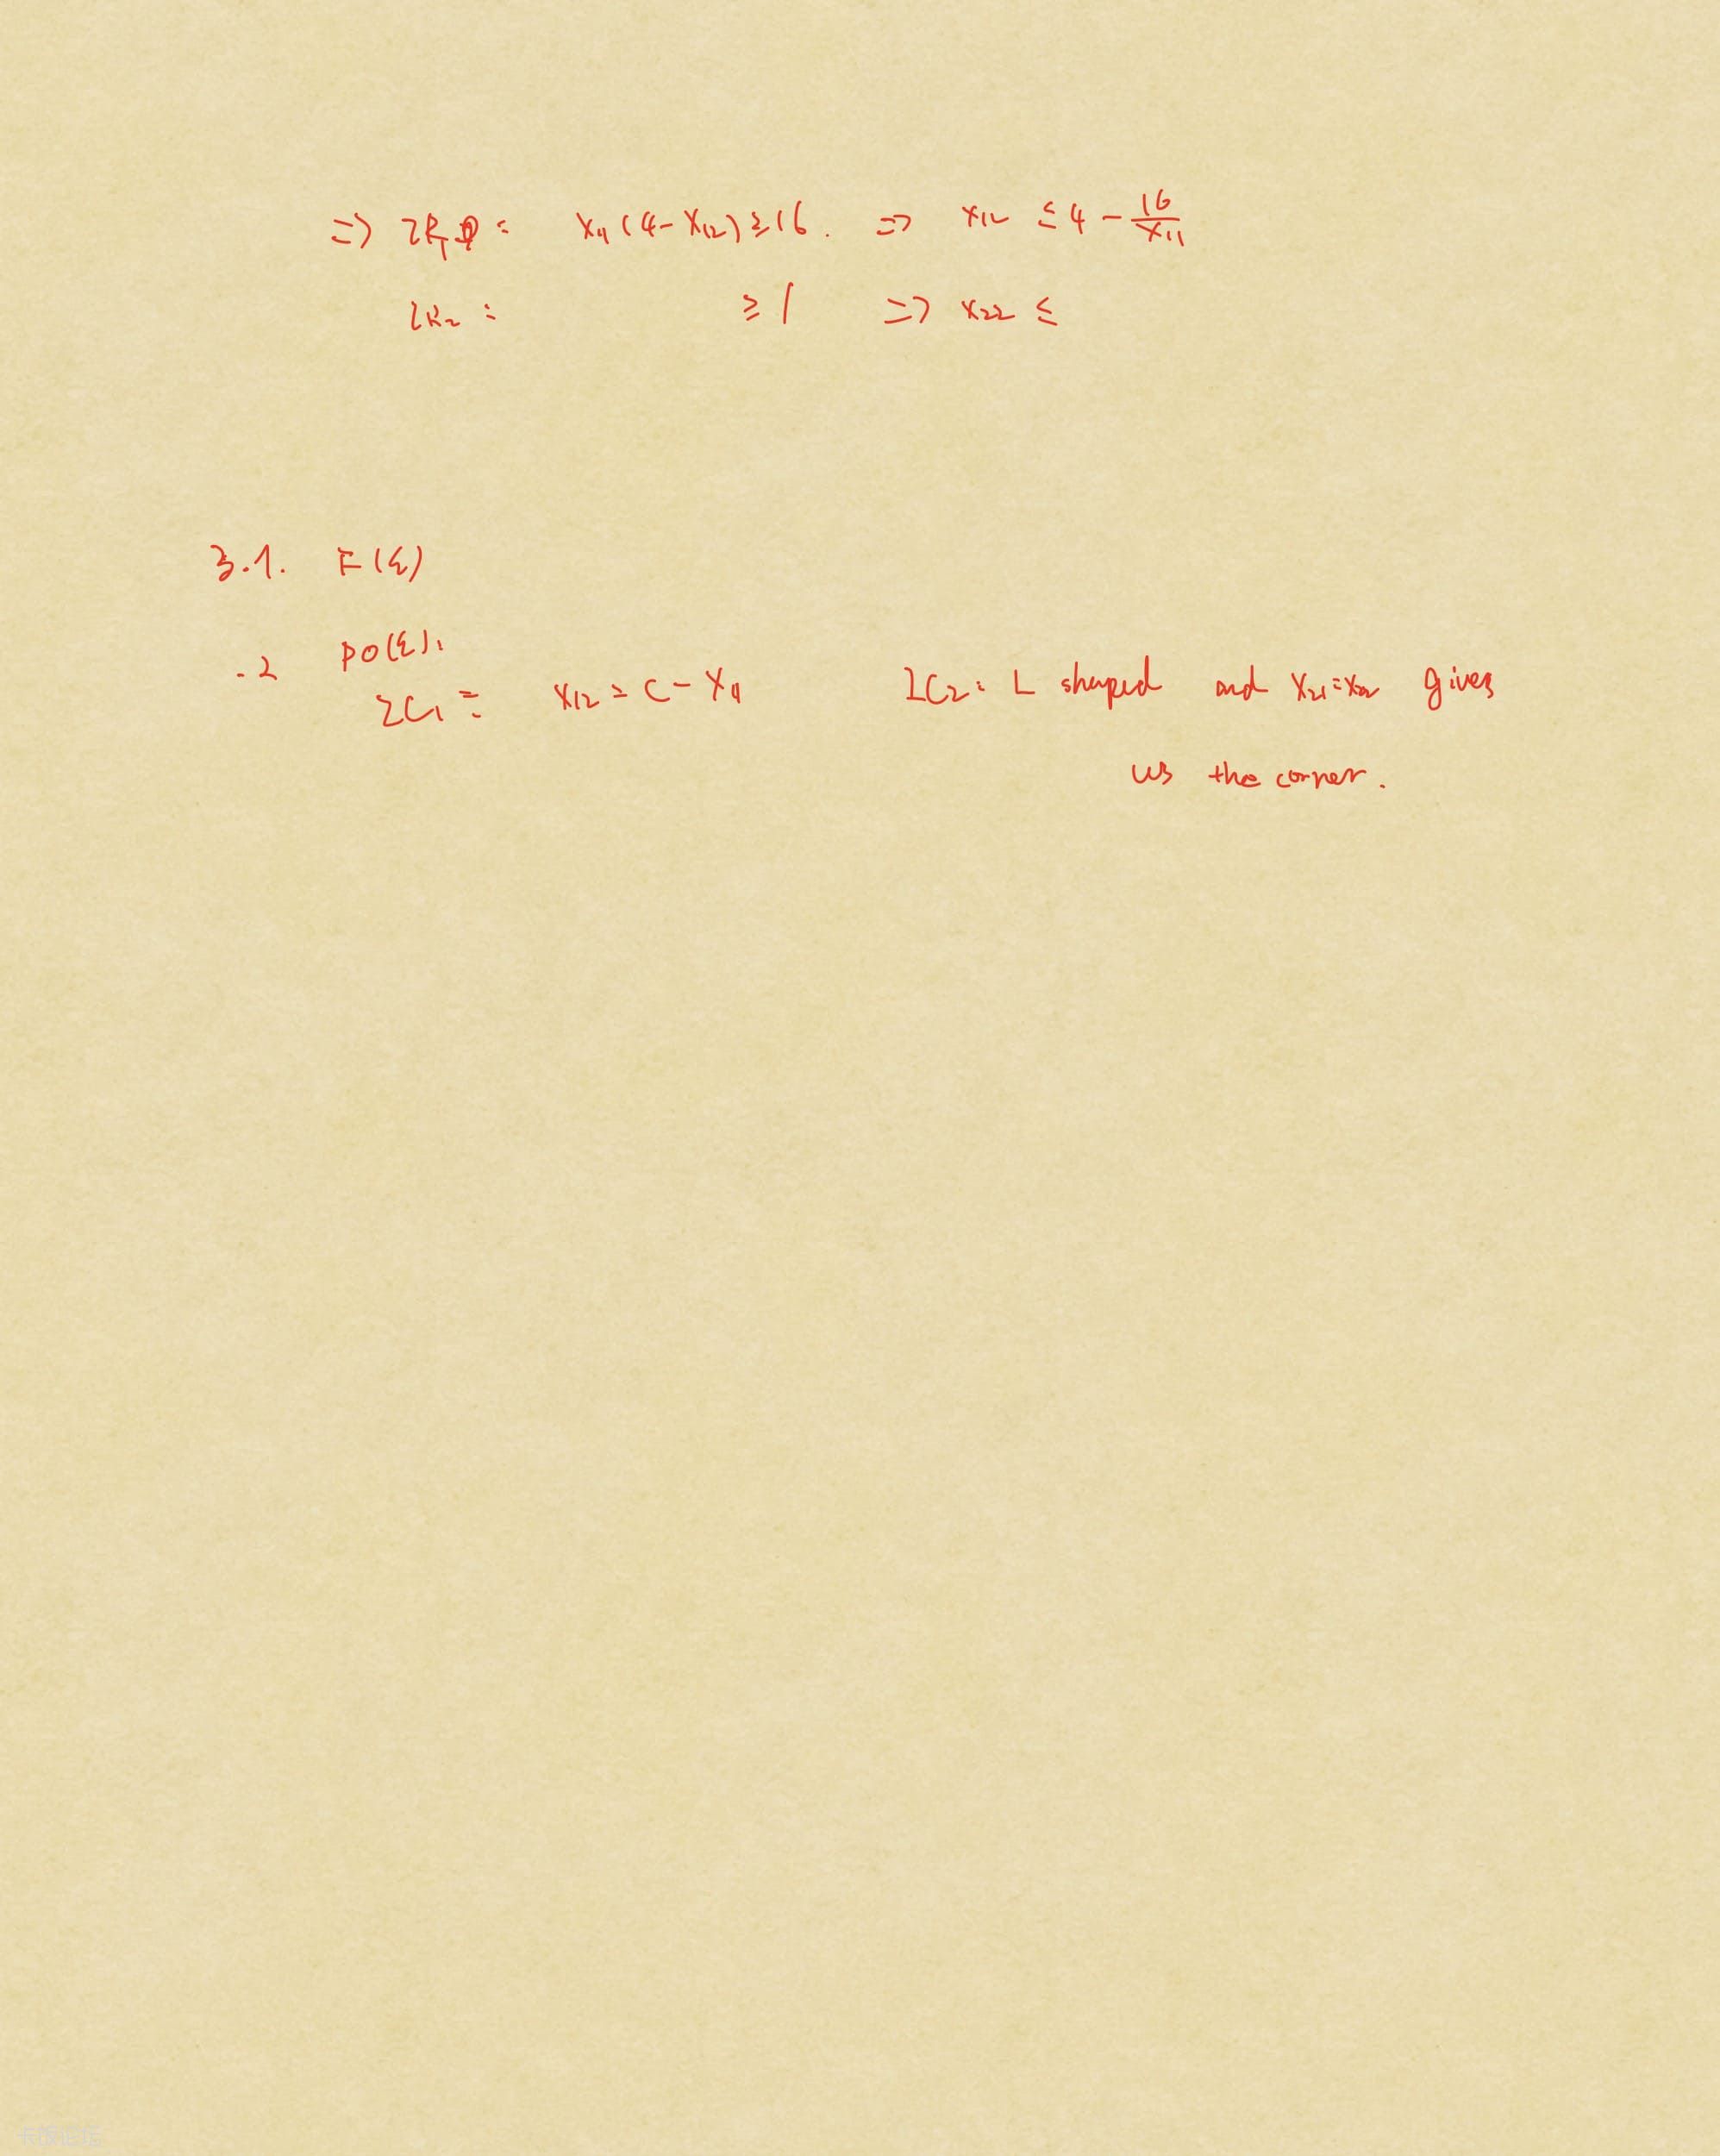 => IR1: x11(4-x12) ≥ 16. => x12 ≤ 4 - 16/x11
IR2: ≥ 1 => x22 ≤
3.1. F(ξ)
.2 PO(ξ).
IC1: x12 = C - x11 IC2: L shaped and x21=x22 gives
us the corner.